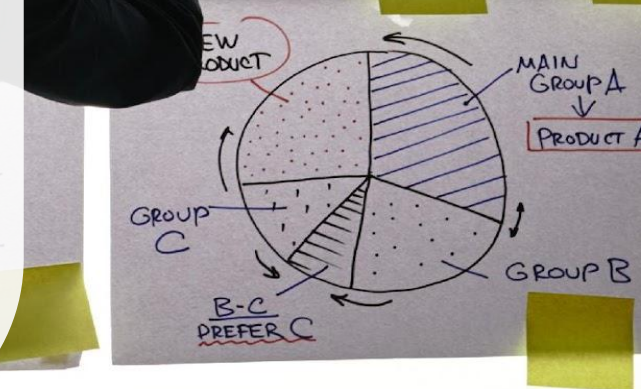 MAIN
GROUP A
PRODUCT A
GROUP
C
GROUP B
B-C
PREFER C